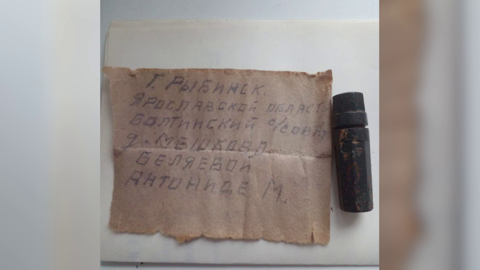 Г. РЫБИНСК.
ЯРОСЛАВСКОЙ ОБЛАСТ
БОЛТИНСКИЙ С/СОВЕТ
д.
БЕЛЯЕВОЙ
АНТОНИДЕ М.